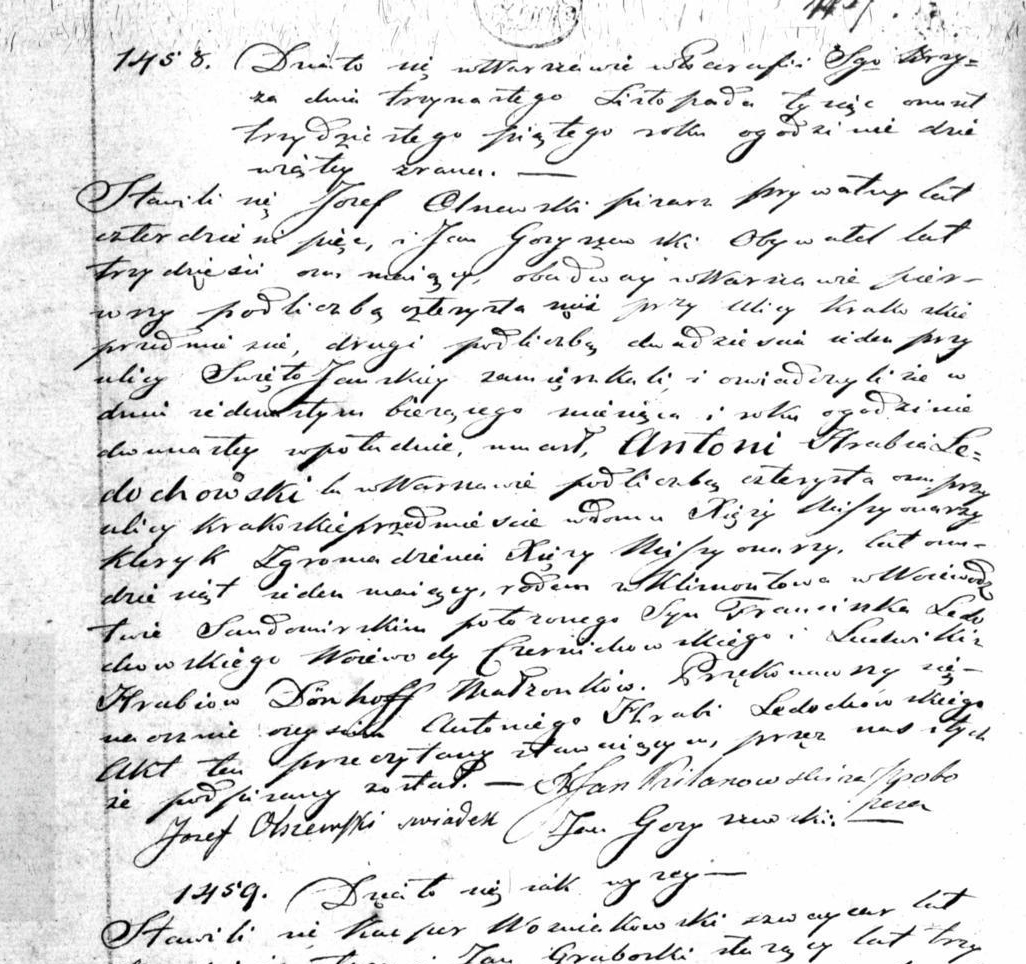 1458. Działo się w Warszawie w Parafii Sgo Krzy=
ża dnia trzynastego Listopada tysiąc ośmset
trzydziestego piątego roku o godzinie dzie
wiątey zrana. —
Stawili się Jozef Olszewski pisarz prywatny lat
czterdzieści pięc, i Jan Goryszewski Obywatel lat
trzydzieści osm maiący, obadway w Warszawie pier-
wszy pod liczbą czterysta przy ulicy Krakowskie
przedmieście, drugi pod liczbą dwadzieścia ieden przy
ulicy Święto Jańskiey zamięszkali i oswiadczyli że w
dniu iedenastym bieżącego miesiąca i roku o godzinie
dwunastey w południe, umarł, Antoni Hrabia Le=
dochowski tu w Warszawie pod liczbą czterysta osm przy
ulicy Krakoskieprzedmieście w domu Xięży Missyonarzy
Kleryk Zgromadzenia Xięży Missyonarzy, lat ośm-
dziesiąt ieden maiący, rodem z Klimontowa w Woiewodz
twie Sandomirskim położonego Syn Franciszka Ledo
chowskiego Woiewody Czernichowskiego i Ludwiki z
Hrabiow Dönhoff Małżonków. Przekonawszy się
naocznie o zejściu Antoniego Hrabi Ledochówskiego
Akt ten przeczytany stawaiącym, przez nas i tych
że podpisany został. — X Jan Kilanowski za Probo
szcza
Jozef Olszewski swiadek Jan Goryszewski.
1459. Działo się iak wyzey —
Stawili się Kacper Wozniakowski szwaycar lat
i Jan Graborski służący lat trzy